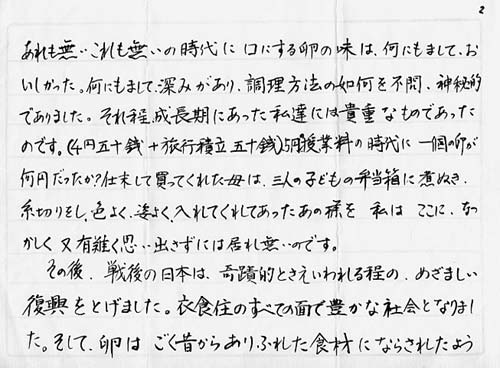 2
あれも無い これも無いの時代に 口にする卵の味は、何にもまして、お
いしかった。何にもまして、深みがあり、調理方法の如何を不問、神秘的
でありました。それ程、成長期にあった私達には貴重なものであった
のです。(4円五十銭+旅行積立 五十銭)5円授業料の時代に 一個の卵が
何円だったか?仕末して買ってくれた母は、三人の子どもの弁当箱に煮ぬき、
糸切りをし、色よく、姿よく、入れてくれてあったあの様を 私は ここに、なつ
かしく 又有難く思い出さずには居れ無いのです。
その後、戦後の日本は、奇蹟的とさえいわれる程の、めざましい
復興をとげました。衣食住のすべての面で豊かな社会となりまし
た。そして、卵は ごく昔からありふれた食材にならされたよう